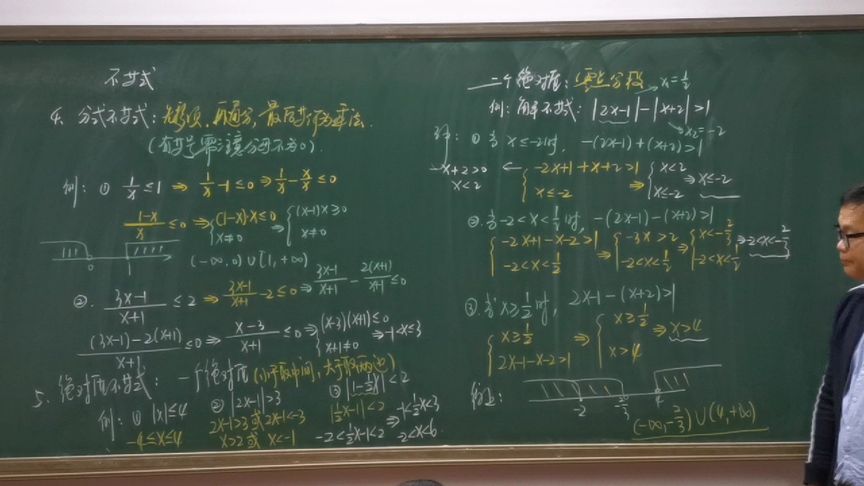 不等式
4. 分式不等式: 先移项, 再通分, 最后转化为乘法.
(有等号需注意分母不为0).
例: ① 1/x ≤ 1 ⇒ 1/x - 1 ≤ 0 ⇒ 1/x - x/x ≤ 0
(1-x)/x ≤ 0 ⇒ { (1-x)·x ≤ 0, x ≠ 0 ⇒ { (x-1)x ≥ 0, x ≠ 0
0 1
(-∞, 0) ∪ [1, +∞)
②. (3x-1)/(x+1) ≤ 2 ⇒ (3x-1)/(x+1) - 2 ≤ 0 ⇒ (3x-1)/(x+1) - 2(x+1)/(x+1) ≤ 0
((3x-1)-2(x+1))/(x+1) ≤ 0 ⇒ (x-3)/(x+1) ≤ 0 ⇒ { (x-3)(x+1) ≤ 0, x+1 ≠ 0 ⇒ -1 < x ≤ 3
5. 绝对值不等式: 一个绝对值 (小于取中间, 大于取两边)
例: ① |x| ≤ 4 ② |2x-1| > 3 ③ |1-½x| < 2
-4 ≤ x ≤ 4 2x-1>3 或 2x-1<-3 |½x-1| < 2 ⇒ -1<½x<3
x>2 或 x<-1 -2<½x-1<2 -2<x<6
二个绝对值: 零点分段 x₁=½
例: 解不等式: |2x-1| - |x+2| > 1
x₂=-2
解: ① 当 x ≤ -2 时, -(2x-1)+(x+2)>1
-x+2>0 ← { -2x+1+x+2>1, x ≤ -2 ⇒ { x<2, x≤-2 ⇒ x≤-2
x<2
②. 当 -2<x<½ 时, -(2x-1)-(x+2)>1
{ -2x+1-x-2>1, -2<x<½ ⇒ { -3x>2, -2<x<½ ⇒ { x<-2/3, -2<x<½ ⇒ -2<x<-2/3
③. 当 x≥½ 时, 2x-1-(x+2)>1
{ x≥½, 2x-1-x-2>1 ⇒ { x≥½, x>4 ⇒ x>4
综上: -2 -2/3 4
(-∞, -2/3) ∪ (4, +∞)